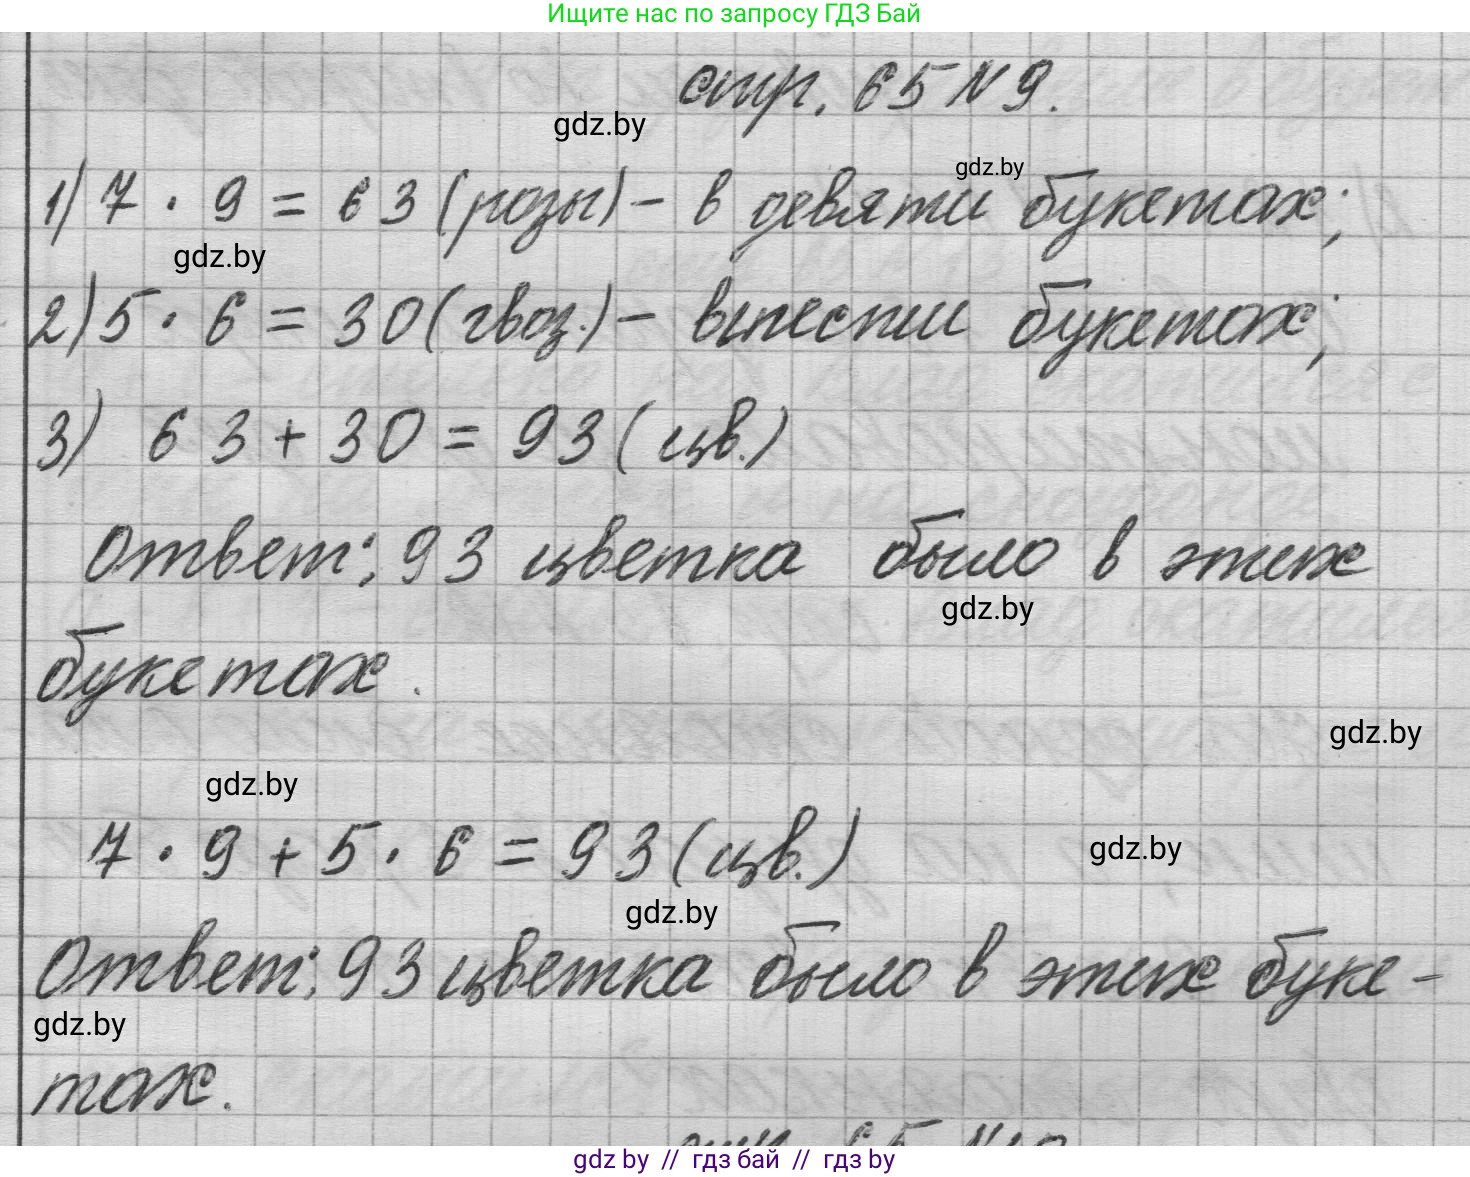 Ищите нас по запросу ГДЗ Бай
стр. 65 N 9.
gdz.by
gdz.by
1) 7 · 9 = 63 (розы) – в девяти букетах;
gdz.by
2) 5 · 6 = 30 (гвоз.) – в шести букетах;
3) 63 + 30 = 93 (цв.)
Ответ: 93 цветка было в этих
gdz.by
букетах.
gdz.by
gdz.by
7 · 9 + 5 · 6 = 93 (цв.)
gdz.by
gdz.by
Ответ: 93 цветка было в этих буке-
gdz.by
тах.
стр. 65 N 10
gdz by // гдз бай // гдз by